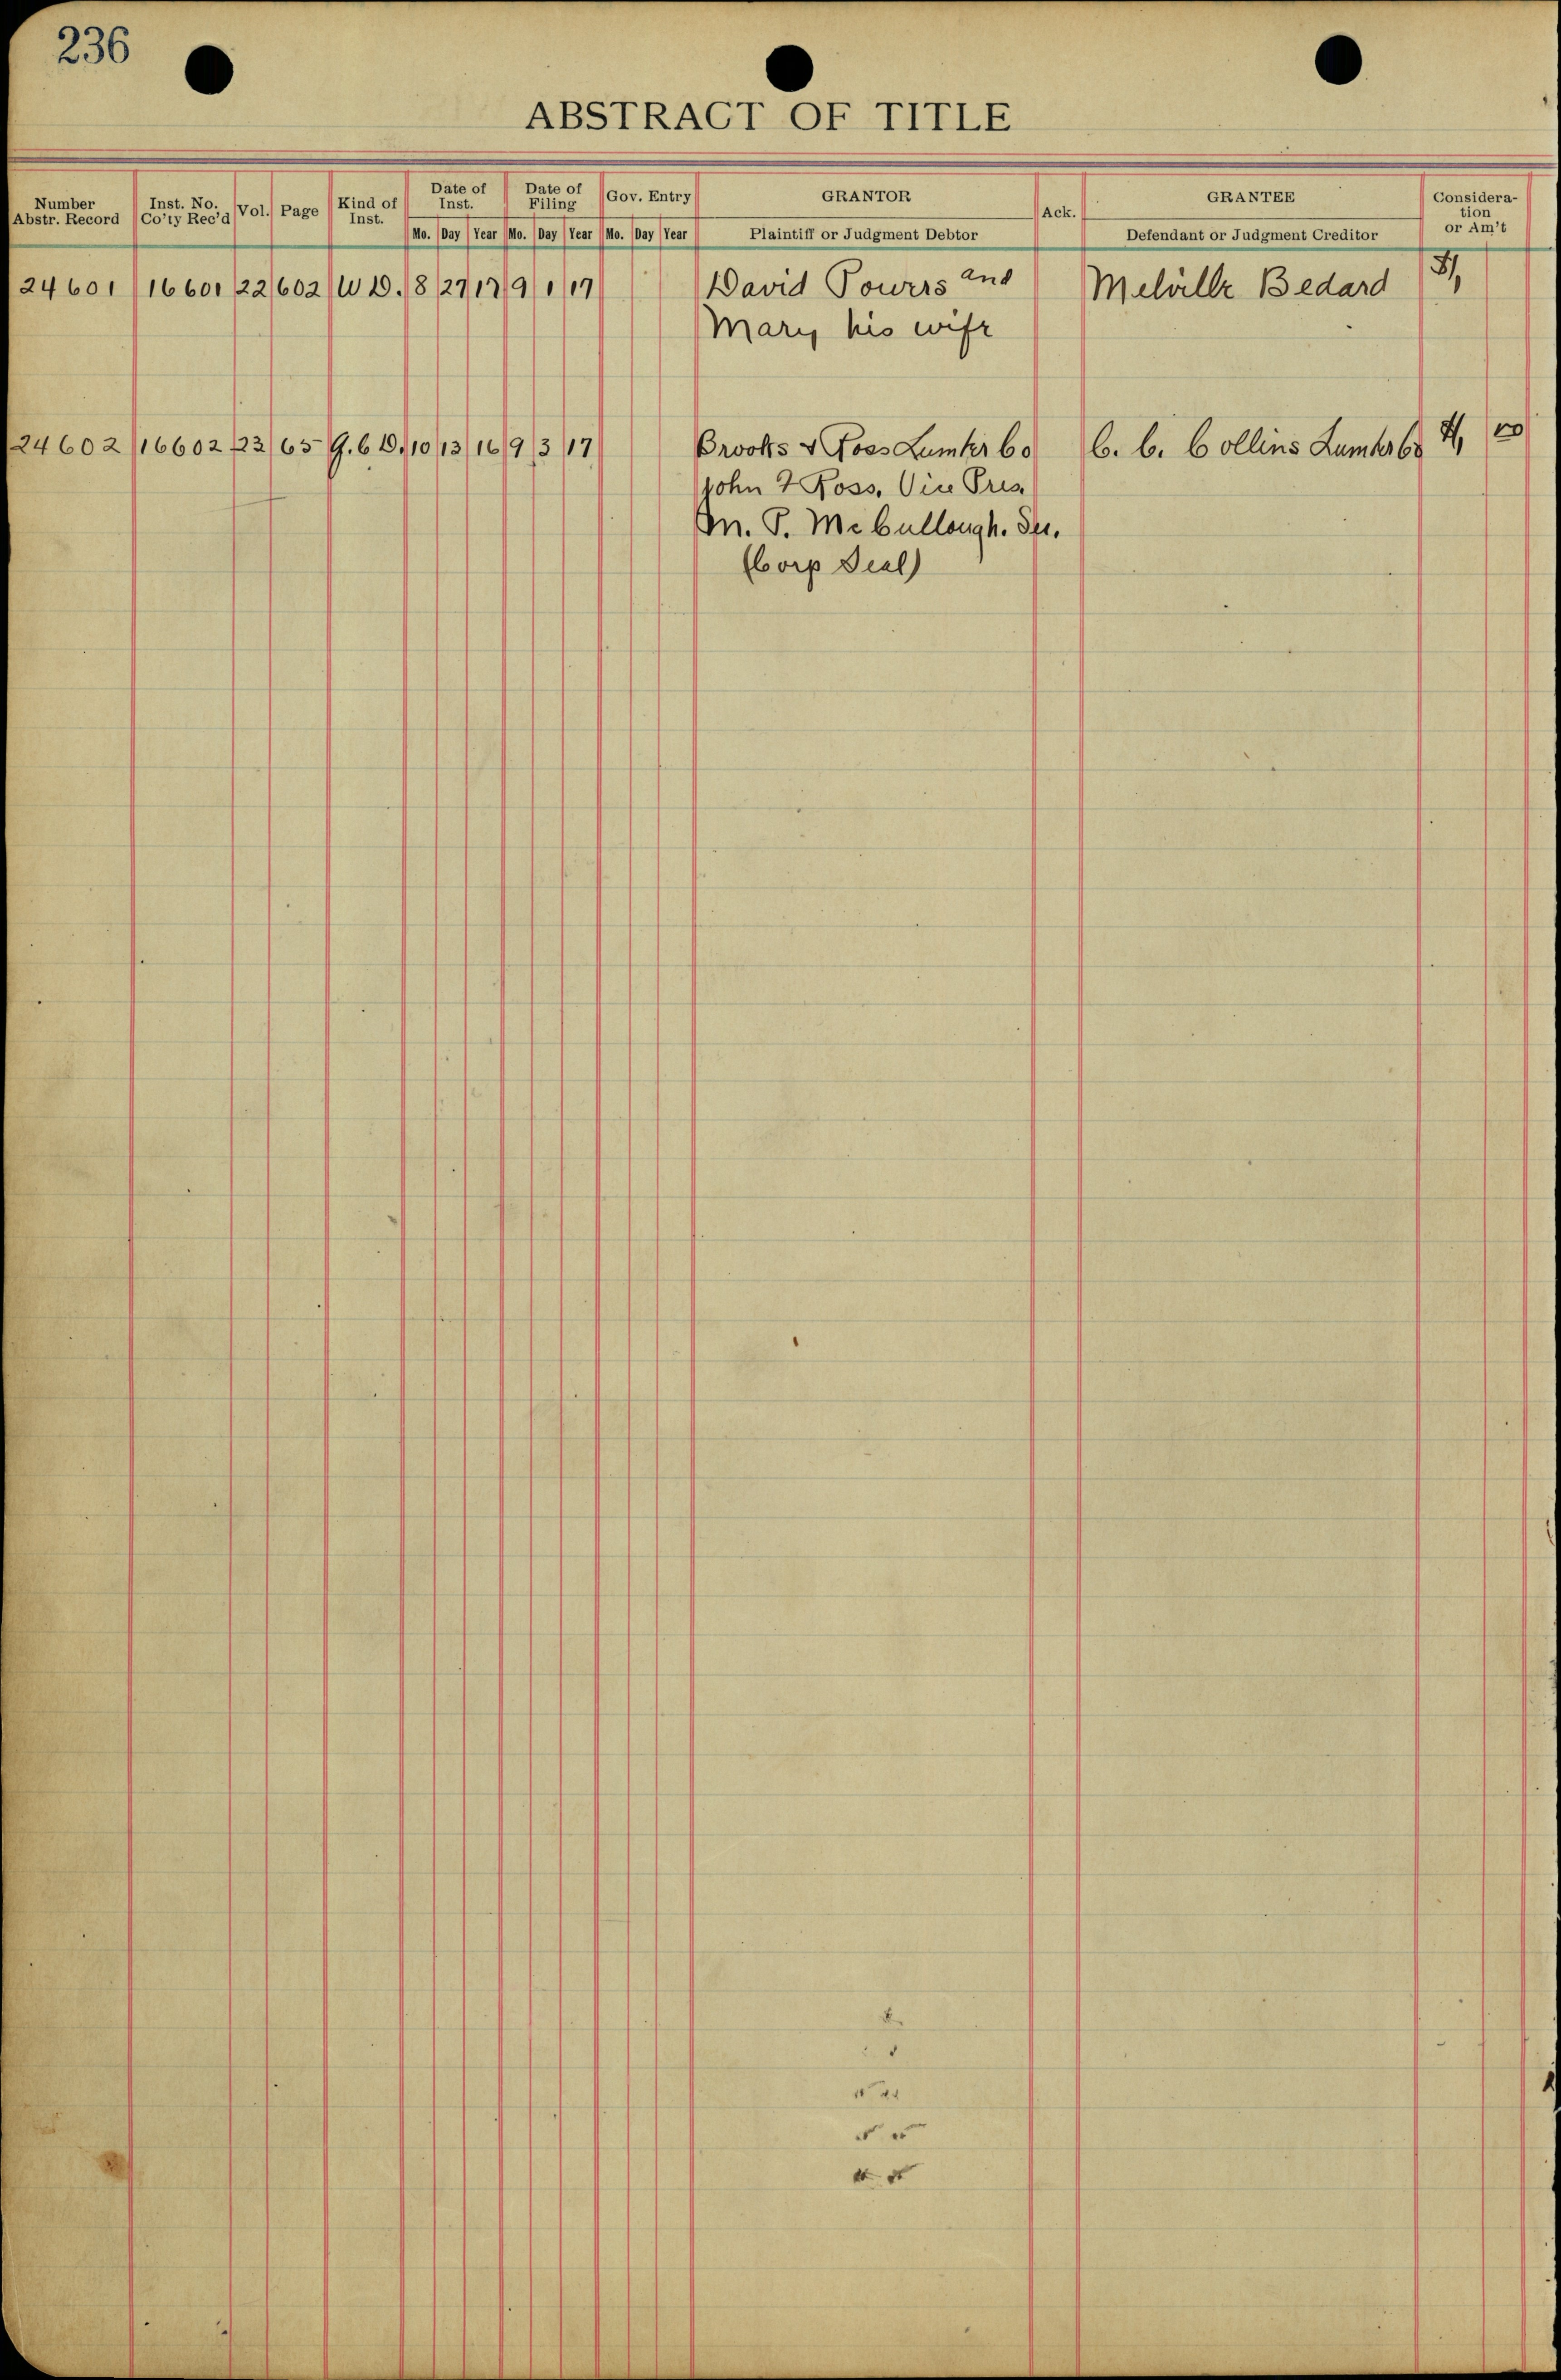 236
ABSTRACT OF TITLE
Number Abstr. Record | Inst. No. Co'ty Rec'd | Vol. | Page | Kind of Inst. | Date of Inst. Mo. Day Year | Date of Filing Mo. Day Year | Gov. Entry Mo. Day Year | GRANTOR Plaintiff or Judgment Debtor | Ack. | GRANTEE Defendant or Judgment Creditor | Consideration or Am't
24601 16601 22 602 W D. 8 27 17 9 1 17 David Powers and Melville Bedard $1,
Mary his wife
24602 16602 23 65 Q.C D. 10 13 16 9 3 17 Brooks & Ross Lumber Co C. C. Collins Lumber Co $1, 00
John F Ross, Vice Pres
M. P. McCullough. Sec.
(Corp Seal)